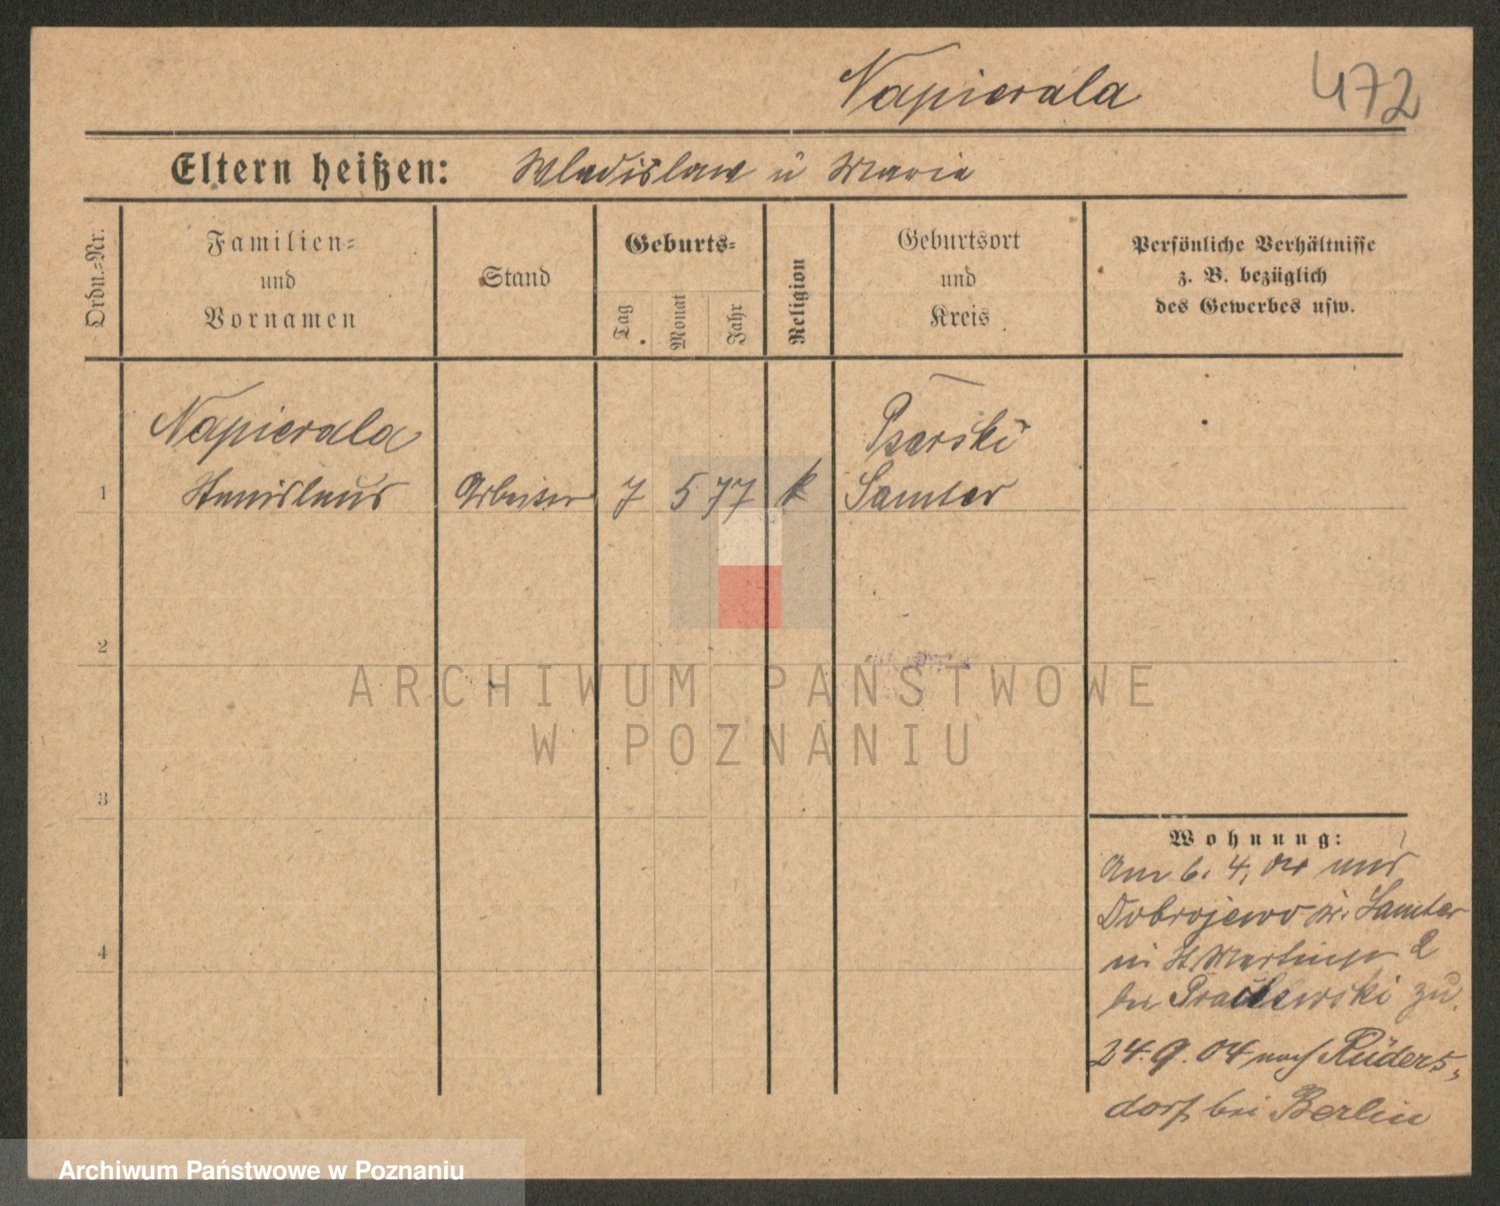 Napierala
472
Eltern heißen: Wladislaw u Marie
Ordn.-Nr.
Familien-
und
Vornamen
Stand
Geburts-
Tag
Monat
Jahr
Religion
Geburtsort
und
Kreis
Persönliche Verhältnisse
z. B. bezüglich
des Gewerbes usw.
Napierala
Psarski
1 Stanislaus Arbeiter 7 5 77 k Samter
2
3
4
Wohnung:
Am 6. 4. 04 aus
Dobrojewo Kr. Samter
in St. Martinstr 2
bei zu.
24.9.04 nach Rüders-
dorf bei Berlin
ARCHIWUM PAŃSTWOWE
W POZNANIU
Archiwum Państwowe w Poznaniu